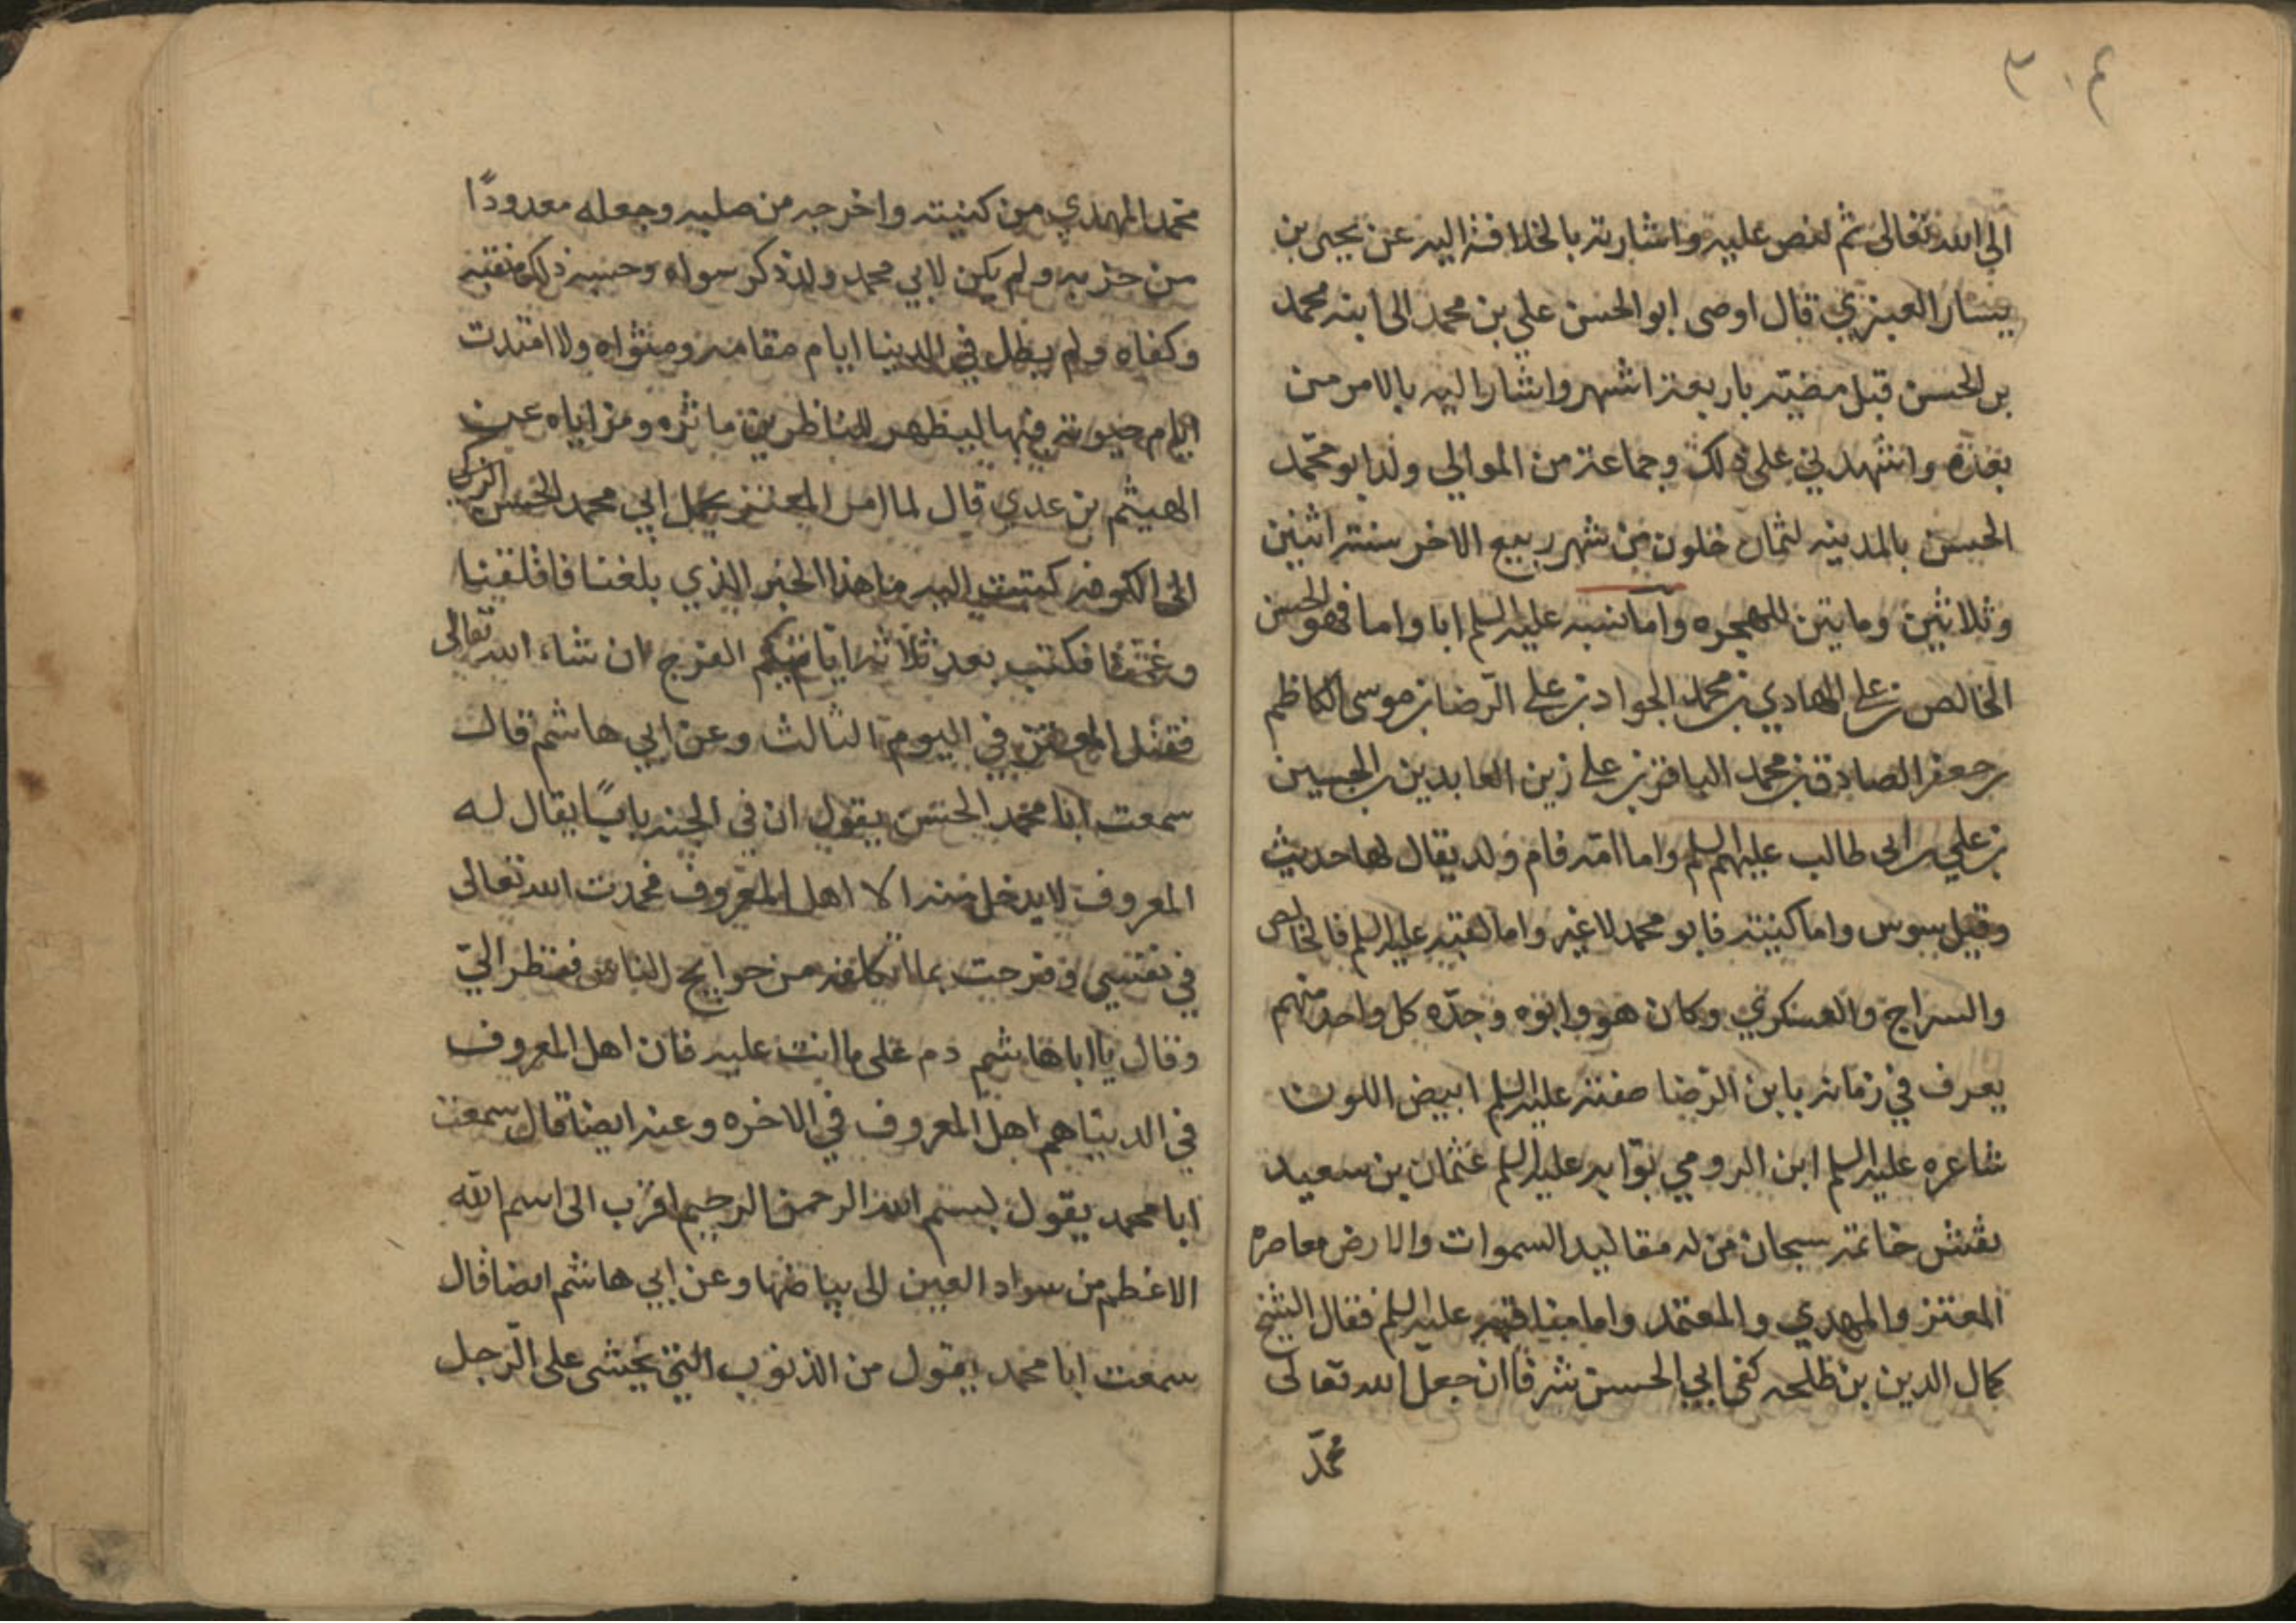 ٣٠٤
الى الله تعالى ثم لنص عليه واشارته بالخلافة اليه عن يحيى بن
يسار العبنزي قال اوصى ابو الحسن علي بن محمد الى ابنه محمد
بن الحسن قبل مضيته باربعة اشهر واشار اليه بالامر من
بعده واشهدني على ذلك وجماعة من الموالي ولد ابو محمد
الحسن بالمدينه لثمان خلون من شهر ربيع الاخر سنة اثنين
وثلاثين ومايتين للهجره واما نسبه عليه السلم ابا واما فهو الحسن
الخالص بن علي الهادي بن محمد الجواد بن علي الرضا بن موسى الكاظم
بن جعفر الصادق بن محمد الباقر بن علي زين العابدين بن الحسين
بن علي بن ابي طالب عليهم السلم واما امه فام ولد يقال لها حديث
وقيل سوس واما كنيته فابو محمد لا غير واما لقبه عليه السلم فالخالص
والسراج والعسكري وكان هو وابوه وجده كل واحد منهم
يعرف في زمانه بابن الرضا صفته عليه السلم ابيض اللون
شاعره عليه السلم ابن الرومي بوابه عليه السلم عثمان بن سعيد
نقش خاتمه سبحان من له مقاليد السموات والارض معاصره
المعتز والمهدي والمعتمد واما مناقبه عليه السلم فقال الشيخ
كمال الدين بن طلحه كفى ابي الحسن شرفا ان جعل الله تعالى
محمد
محمد المهدي من كنيته واخرجه من صلبه وجعله معدودًا
من حزبه ولم يكن لابي محمد ولد ذكر سواه وحسبه ذلك منقبة
وكفاه ولم يطل في الدنيا ايام مقامه ومثواه ولا امتدت
ايام حيوته فيها ليظهر للناظرين ماثره ومزاياه عن
الهيثم بن عدي قال لما امر المعتز بحمل ابي محمد الحسن الزكي
الى الكوفه كتبت اليه ما هذا الخبر الذي بلغنا فاقلقنا
وغمنا فكتب بعد ثلاثة ايام ياتيكم الفرج ان شاء الله تعالى
فقتل المعتز في اليوم الثالث وعن ابي هاشم قال
سمعت ابا محمد الحسن يقول ان في الجنه بابًا يقال له
المعروف لا يدخل منه الا اهل المعروف فحمدت الله تعالى
في نفسي وفرحت بما اتكلفه من حوايج الناس فنظر اليّ
وقال يا ابا هاشم دم على ما انت عليه فان اهل المعروف
في الدنيا هم اهل المعروف في الاخره وعنه ايضا قال سمعت
ابا محمد يقول بسم الله الرحمن الرحيم اقرب الى اسم الله
الاعظم من سواد العين الى بياضها وعن ابي هاشم ايضا قال
سمعت ابا محمد يقول من الذنوب التي يخشى على الرجل